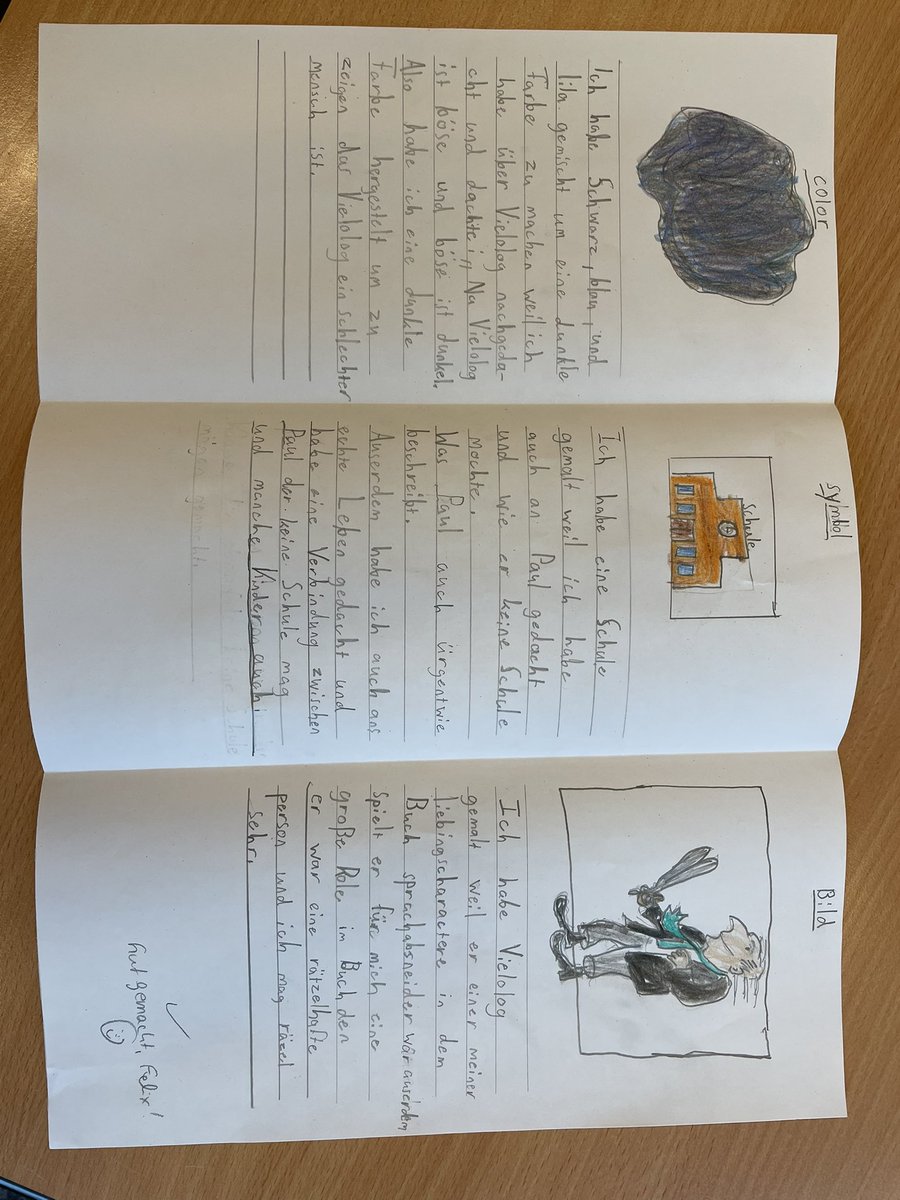 color
Ich habe Schwarz, blau, und
lila gemischt um eine dunkle
Farbe zu machen weil ich
habe über Vielolog nachgeda-
cht und dachte in Na Vielolog
ist böse und böse ist dunkel.
Also habe ich eine dunkle
Farbe hergestelt um zu
zeigen das Vielolog ein schlechter
mensich ist.
symbol
Schule
Ich habe eine Schule
gemalt weil ich habe
auch an Paul gedacht
und wie er keine Schule
mochte.
Was Paul auch ürgentwie
beschreibt.
Auserdem habe ich auch ans
echte Leben gedacht und
habe eine Verbindung zwischen
Paul der keine Schule mag
und manche Kinder auch.
mögen gemacht.
Bild
Ich habe Vielolog
gemalt weil er einer meiner
liebingscharactere in dem
Buch sprachabsneider war auserdem
spielt er für mich eine
große Role im Buch den
er war eine rätzelhafte
person und ich mag räzel
sehr.
Gut gemacht, Felix!